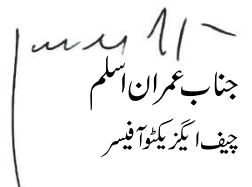 جناب عمران اسلم
چیف ایگزیکٹو آفیسر